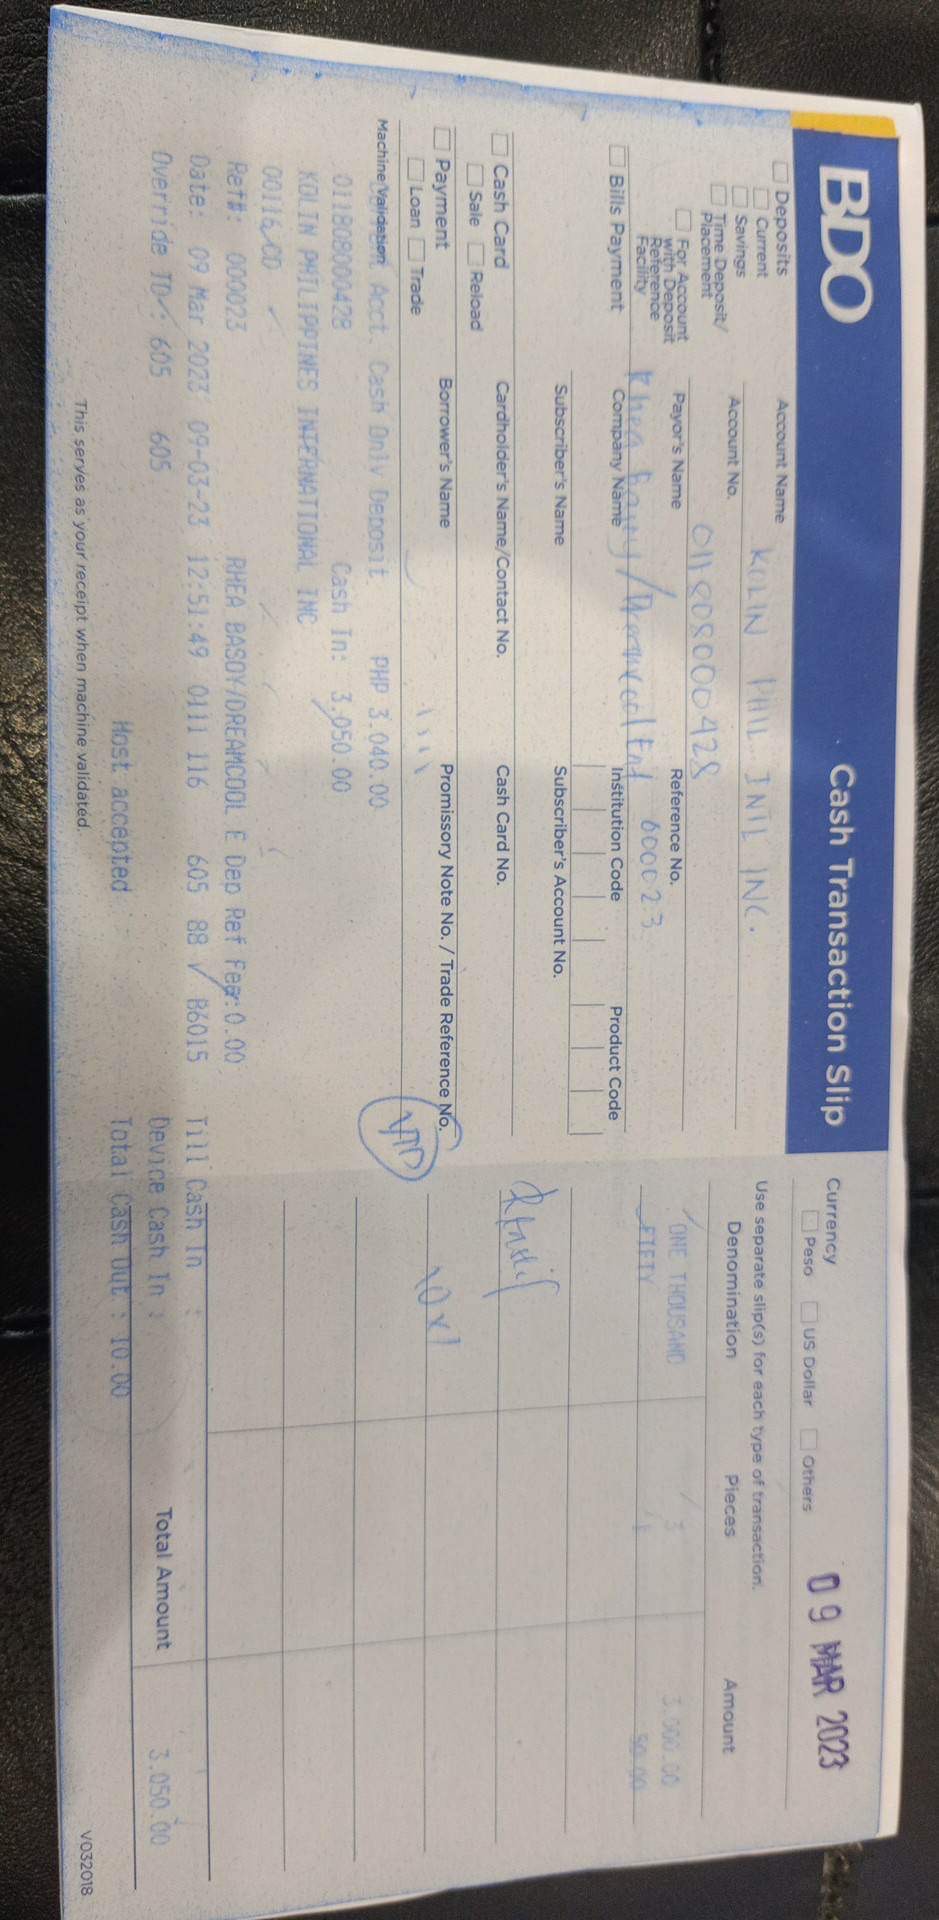 BDO
Cash Transaction Slip
Deposits
Current
Savings
Time Deposit/
Placement
For Account
with Deposit
Reference
Facility
Account Name KOLIN PHIL INTL INC.
Account No. 011808000428
Payor's Name
Reference No.
Rhea Basoy/Dreamcool Ent 600023
Bills Payment
Company Name
Institution Code
Product Code
Subscriber's Name
Subscriber's Account No.
Cash Card
Sale
Reload
Cardholder's Name/Contact No.
Cash Card No.
Payment
Loan
Trade
Borrower's Name
Promissory Note No. / Trade Reference No.
Machine Validation
Acct. Cash Only Deposit PHP 3,040.00
011808000428 Cash In: 3,050.00
KOLIN PHILIPPINES INTERNATIONAL INC
00116,CD
Ref#: 000023 RHEA BASOY/DREAMCOOL E Dep Ref Fee: 0.00
Date: 09 Mar 2023 09-03-23 12:51:49 0111 116 605 88 B6015
Override ID: 605 605
Host accepted
This serves as your receipt when machine validated.
Currency
Peso
US Dollar
Others
09 MAR 2023
Use separate slip(s) for each type of transaction.
Denomination Pieces Amount
ONE THOUSAND 3 3,000.00
FIFTY 1 50.00
10x1
Till Cash In :
Device Cash In :
Total Cash Out : 10.00
Total Amount 3,050.00
V032018